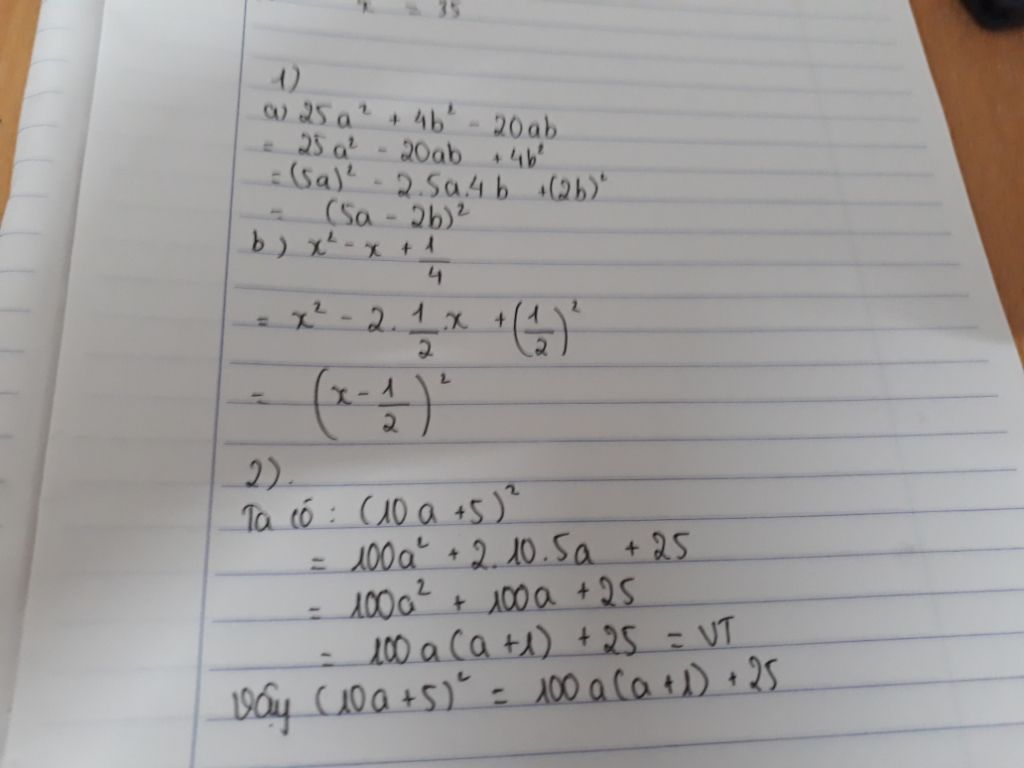 x = 35
1)
a) 25a² + 4b² - 20ab
= 25a² - 20ab + 4b²
= (5a)² - 2.5a.4b + (2b)²
= (5a - 2b)²
b) x² - x + 1/4
= x² - 2. 1/2 .x + (1/2)²
= (x - 1/2)²
2).
Ta có : (10a + 5)²
= 100a² + 2.10.5a + 25
= 100a² + 100a + 25
= 100a(a + 1) + 25 = VT
Vậy (10a + 5)² = 100a(a + 1) + 25